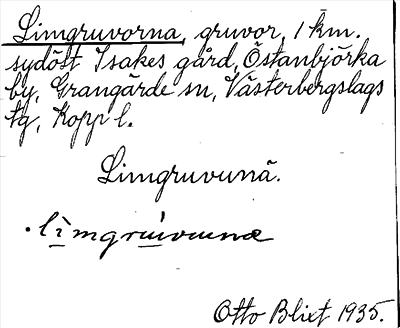 Limgruvorna, gruvor, 1 km.
sydöst Isakes gård, Östanbjörka
by, Grangärde sn, Västerbergslags
tg, Kopp l.
Limgruvunä.
Otto Blixt 1935.